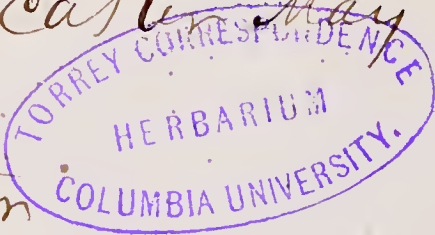 East in May
TORREY CORRESPONDENCE
HERBARIUM
COLUMBIA UNIVERSITY.